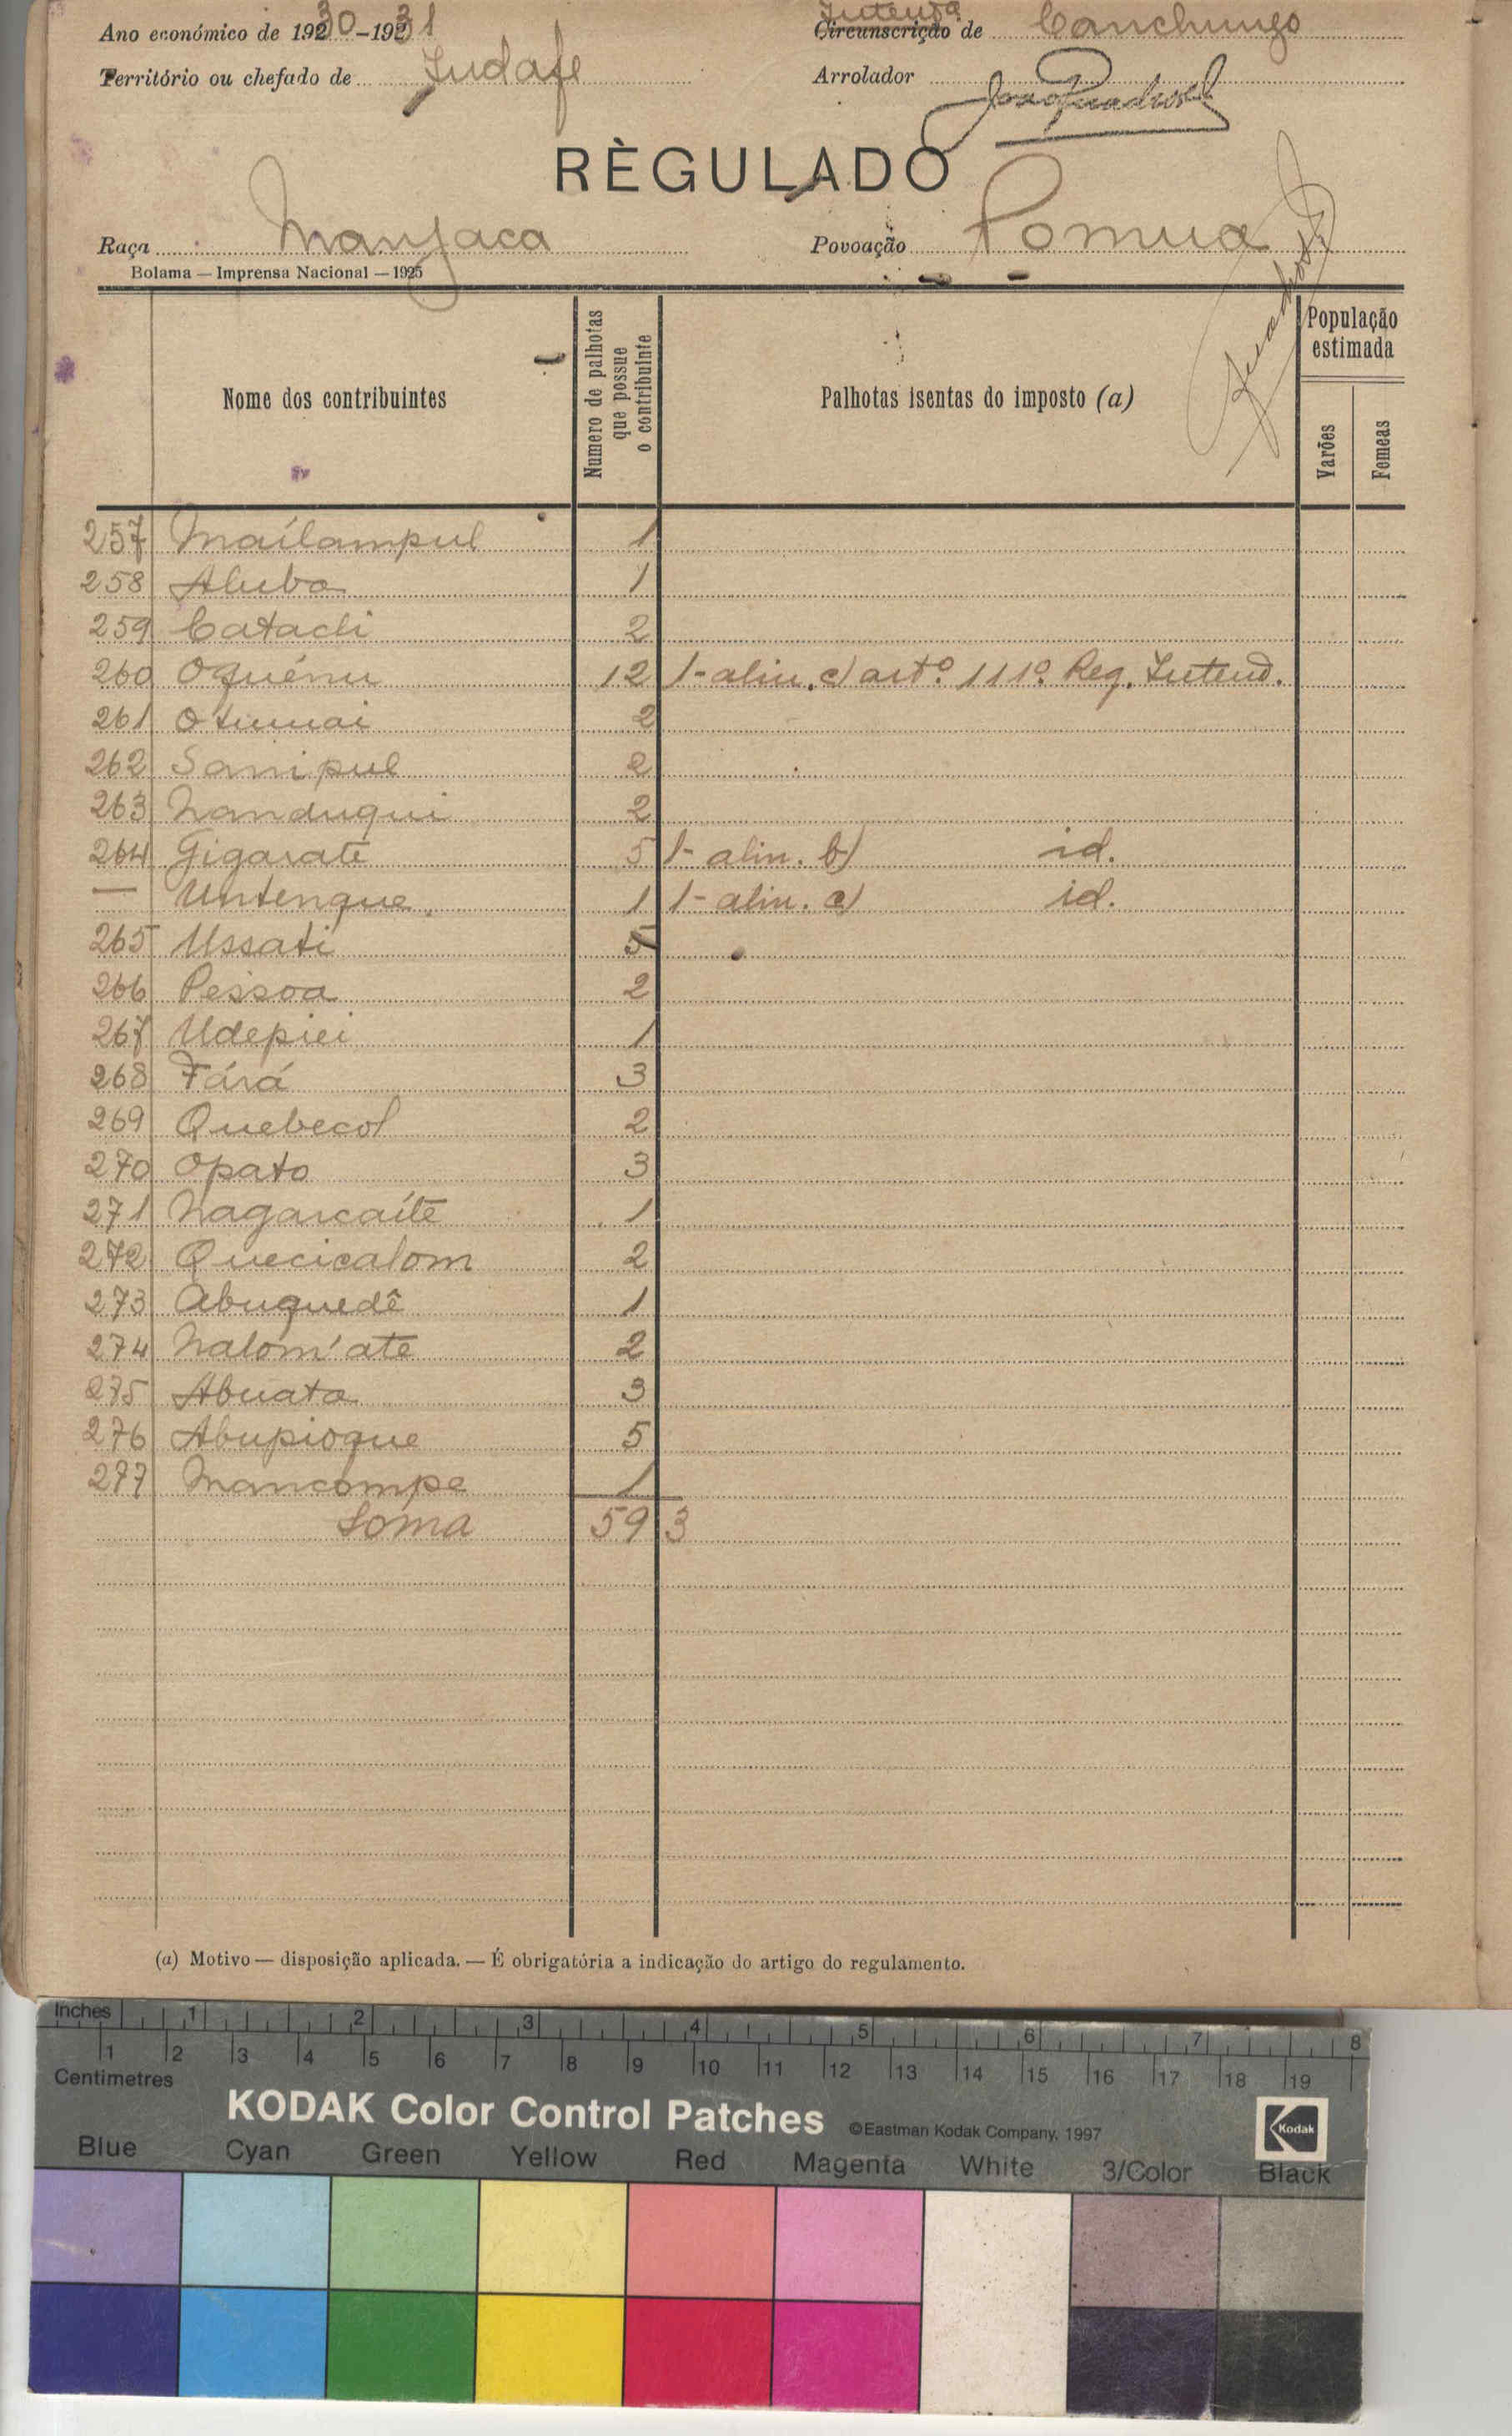 Ano económico de 1930-1931
Intend.ª
Circunscrição de Canchungo
Território ou chefado de Indafe
Arrolador
RÈGULADO
Raça Manjaca
Povoação Pomua
Bolama — Imprensa Nacional — 1925
Nome dos contribuintes
Numero de palhotas que possue o contribuinte
Palhotas isentas do imposto (a)
População estimada
Varões
Femeas
257 Maílampul 1
258 Aluba 1
259 Catachi 2
260 Oquénu 12 1- alin. c) artº. 111º. Reg. Intend.
261 Otumai 2
262 Sanipul 2
263 Nanduqui 2
264 Gigarate 5 1- alin. b) id.
— Untenque 1 1- alin. c) id.
265 Ussati 5
266 Pessoa 2
267 Udepiei 1
268 Fárá 3
269 Quebecol 2
270 Opato 3
271 Nagarcaíte 1
272 Quecicalom 2
273 Abuquedê 1
274 Nalom'ate 2
275 Abuata 3
276 Abupioque 5
277 Mancompe 1
Soma 59 3
(a) Motivo — disposição aplicada. — É obrigatória a indicação do artigo do regulamento.
Inches 1 2 3 4 5 6 7 8
Centimetres 1 2 3 4 5 6 7 8 9 10 11 12 13 14 15 16 17 18 19
KODAK Color Control Patches ©Eastman Kodak Company, 1997 Kodak
Blue Cyan Green Yellow Red Magenta White 3/Color Black